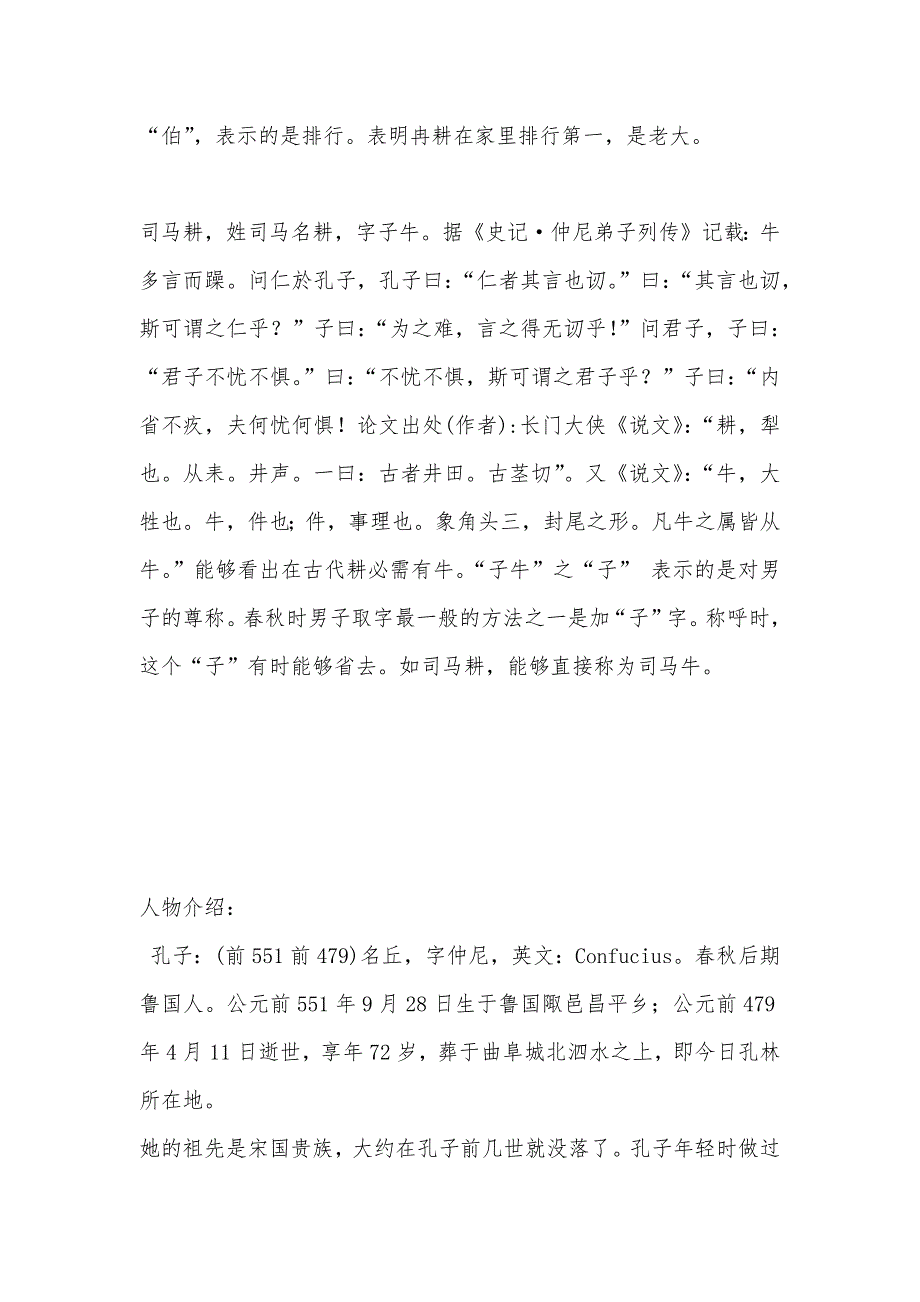 “伯”，表示的是排行。表明冉耕在家里排行第一，是老大。
司马耕，姓司马名耕，字子牛。据《史记·仲尼弟子列传》记载：牛
多言而躁。问仁於孔子，孔子曰：“仁者其言也讱。”曰：“其言也讱，
斯可谓之仁乎？”子曰：“为之难，言之得无讱乎！”问君子，子曰：
“君子不忧不惧。”曰：“不忧不惧，斯可谓之君子乎？”子曰：“内
省不疚，夫何忧何惧！论文出处(作者):长门大侠《说文》：“耕，犁
也。从耒。井声。一曰：古者井田。古茎切”。又《说文》：“牛，大
牲也。牛，件也；件，事理也。象角头三，封尾之形。凡牛之属皆从
牛。”能够看出在古代耕必需有牛。“子牛”之“子” 表示的是对男
子的尊称。春秋时男子取字最一般的方法之一是加“子”字。称呼时，
这个“子”有时能够省去。如司马耕，能够直接称为司马牛。
人物介绍：
孔子：(前 551 前 479)名丘，字仲尼，英文：Confucius。春秋后期
鲁国人。公元前 551 年 9 月 28 日生于鲁国陬邑昌平乡；公元前 479
年 4 月 11 日逝世，享年 72 岁，葬于曲阜城北泗水之上，即今日孔林
所在地。
她的祖先是宋国贵族，大约在孔子前几世就没落了。孔子年轻时做过